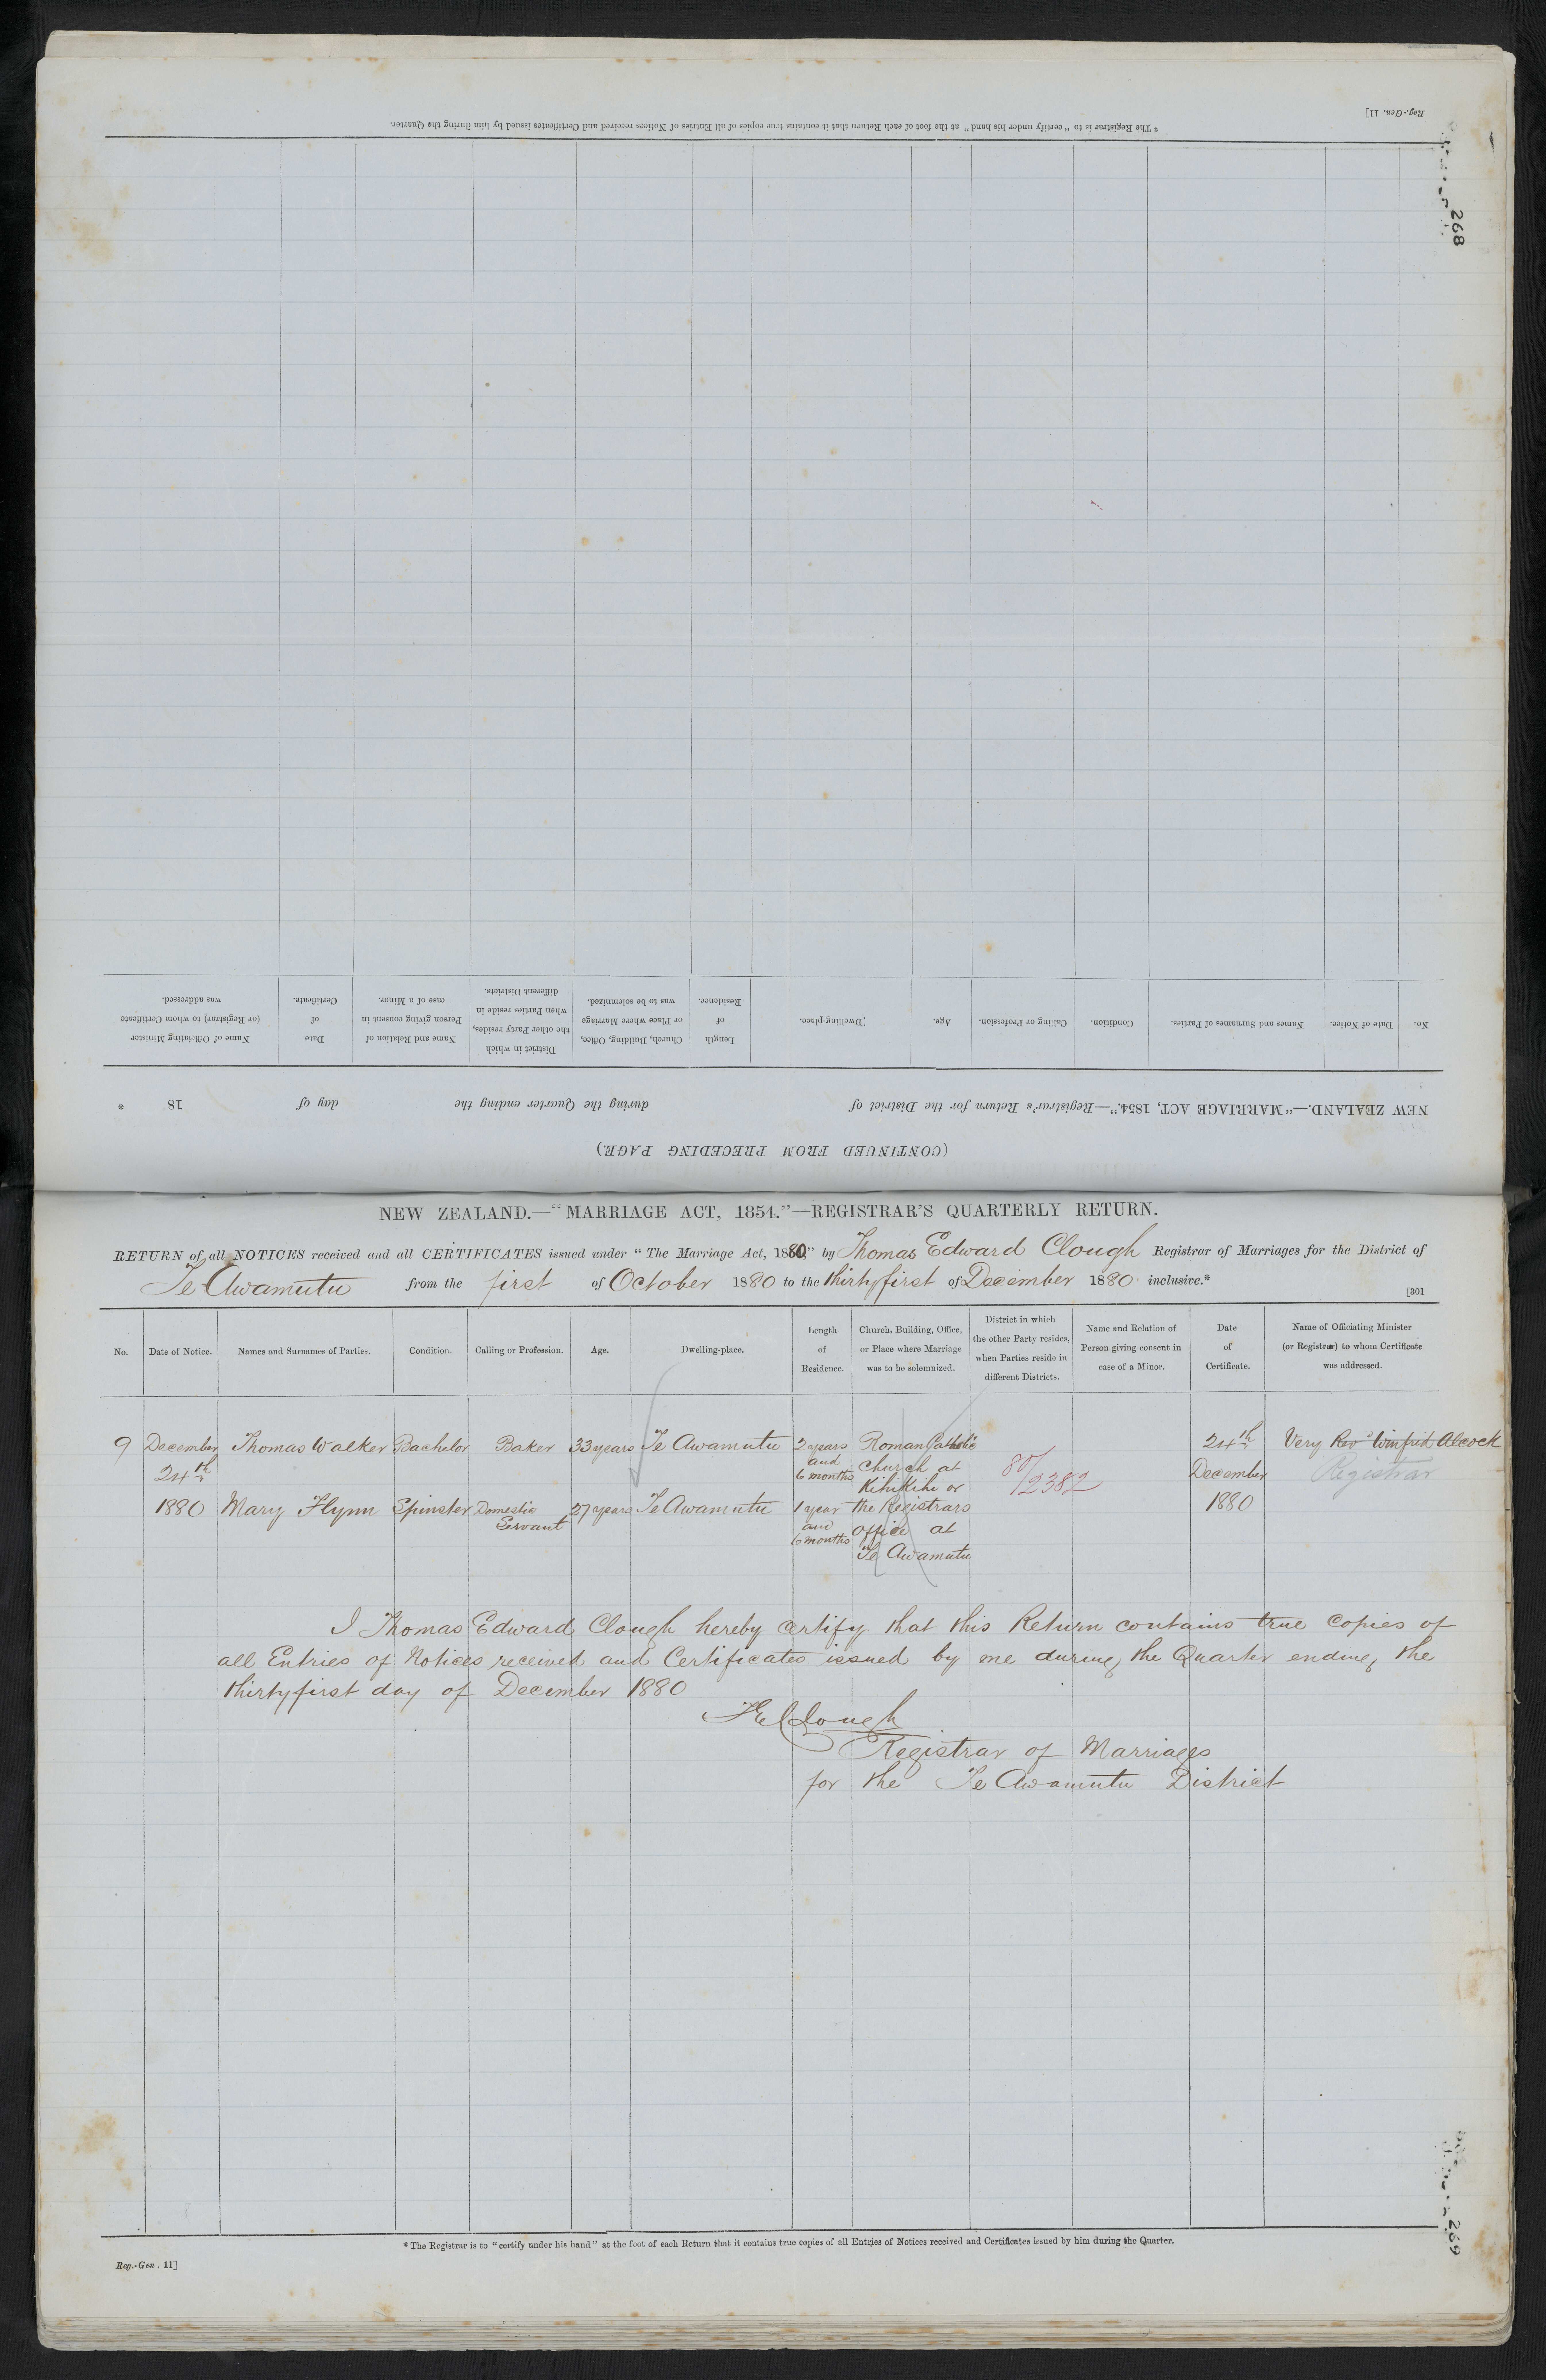 268
Reg.-Gen. 11]
* The Registrar is to "certify under his hand" at the foot of each Return that it contains true copies of all Entries of Notices received and Certificates issued by him during the Quarter.
(CONTINUED FROM PRECEDING PAGE.)
NEW ZEALAND.—"MARRIAGE ACT, 1854."—Registrar's Return for the District of during the Quarter ending the day of 18 .
No. Date of Notice. Names and Surnames of Parties. Condition. Calling or Profession. Age. Dwelling-place. Length of Residence. Church, Building, Office, or Place where Marriage was to be solemnized. District in which the other Party resides, when Parties reside in different Districts. Name and Relation of Person giving consent in case of a Minor. Date of Certificate. Name of Officiating Minister (or Registrar) to whom Certificate was addressed.
NEW ZEALAND.—"MARRIAGE ACT, 1854."—REGISTRAR'S QUARTERLY RETURN.
RETURN of all NOTICES received and all CERTIFICATES issued under "The Marriage Act, 1880," by Thomas Edward Clough Registrar of Marriages for the District of
Te Awamutu from the first of October 1880 to the thirtyfirst of December 1880 inclusive.*
[301
No. Date of Notice. Names and Surnames of Parties. Condition. Calling or Profession. Age. Dwelling-place. Length of Residence. Church, Building, Office, or Place where Marriage was to be solemnized. District in which the other Party resides, when Parties reside in different Districts. Name and Relation of Person giving consent in case of a Minor. Date of Certificate. Name of Officiating Minister (or Registrar) to whom Certificate was addressed.
9 December Thomas Walker Bachelor Baker 33 years Te Awamutu 2 years Roman Catholic 24th Very Rev Winifrid Alcock
24th and 6 months Church at Kihikihi or 80/2382 December Registrar
1880 Mary Flynn Spinster Domestic Servant 27 years Te Awamutu 1 year the Registrars 1880
and 6 months office at
Te Awamutu
I Thomas Edward Clough hereby certify that this Return contains true copies of
all Entries of Notices received and Certificates issued by me during the Quarter ending the
thirtyfirst day of December 1880
TEClough
Registrar of Marriages
for the Te Awamutu District
* The Registrar is to "certify under his hand" at the foot of each Return that it contains true copies of all Entries of Notices received and Certificates issued by him during the Quarter.
Reg.-Gen. 11]
269